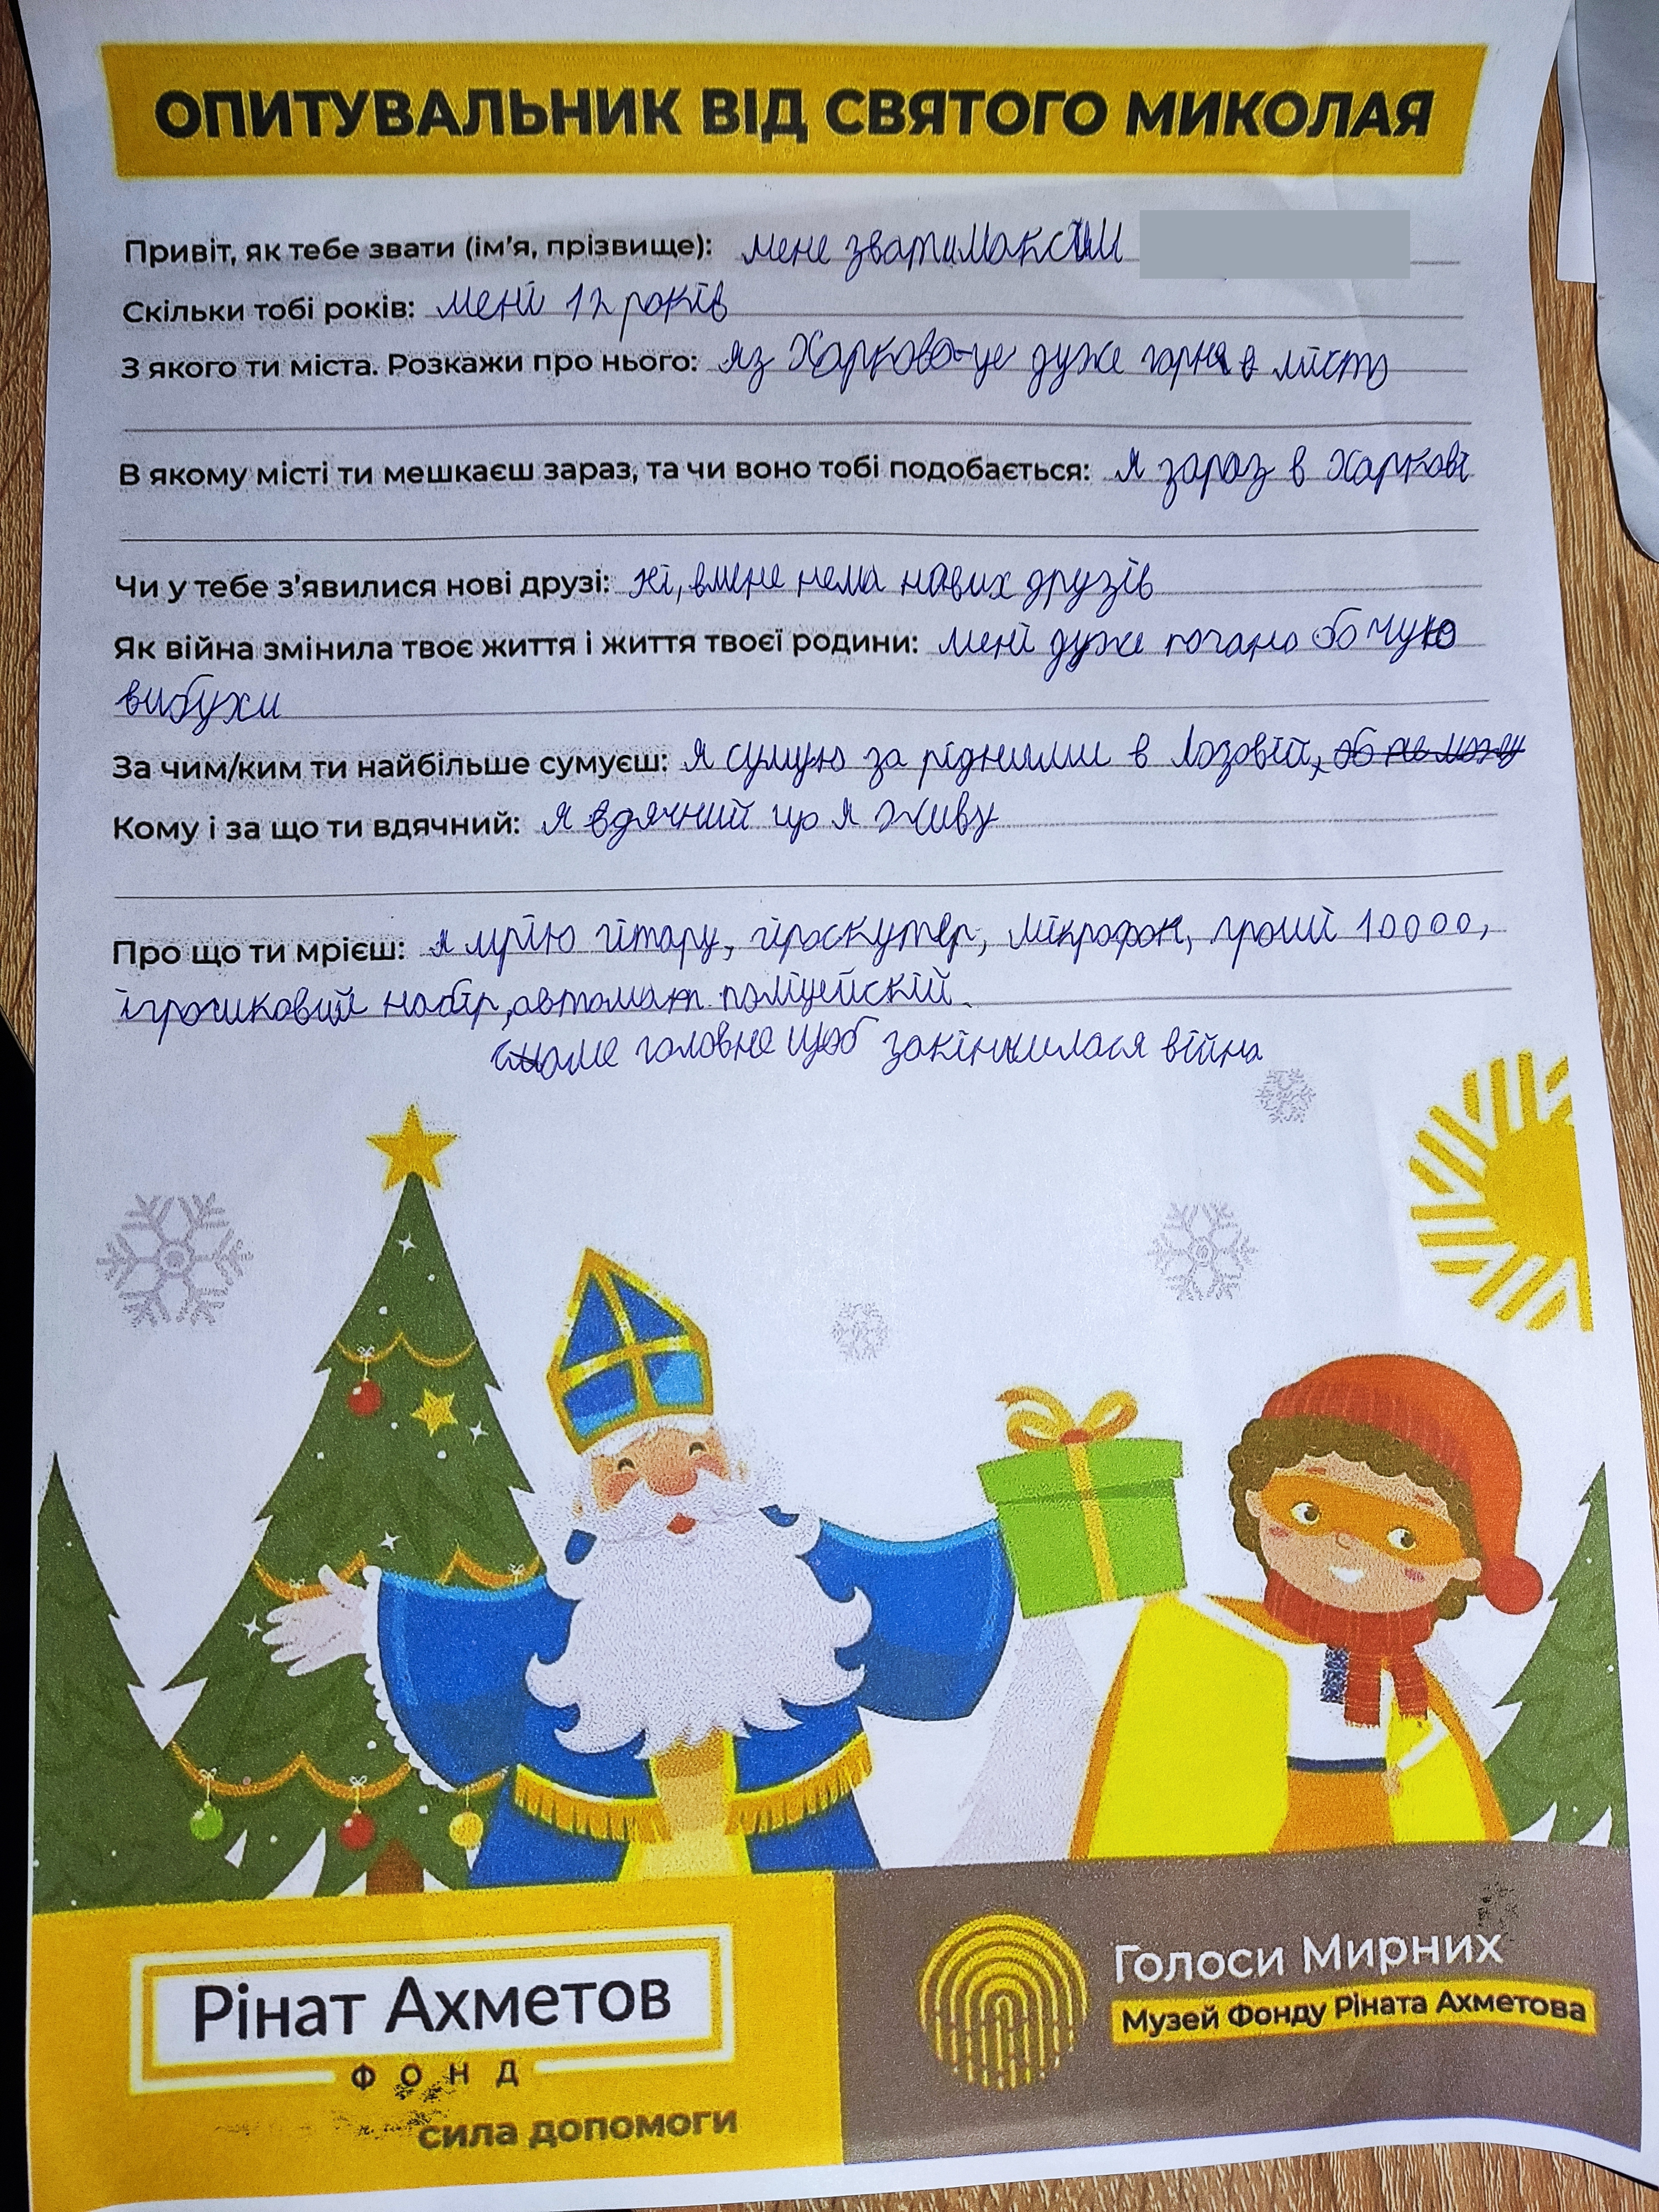 ОПИТУВАЛЬНИК ВІД СВЯТОГО МИКОЛАЯ
Привіт, як тебе звати (ім'я, прізвище): мене звати Максим
Скільки тобі років: мені 12 років
З якого ти міста. Розкажи про нього: я з Харкова-це дуже гарне місто
В якому місті ти мешкаєш зараз, та чи воно тобі подобається: я зараз в Харкові
Чи у тебе з'явилися нові друзі: ні, вмене нема нових друзів
Як війна змінила твоє життя і життя твоєї родини: мені дуже погано бо чую
вибухи
За чим/ким ти найбільше сумуєш: я сумую за рідними в Лозовій,
Кому і за що ти вдячний: я вдячний що я живу
Про що ти мрієш: я мрію гітару, гіроскутер, мікрофон, гроші 10000,
ігрошковий набір, автомат поліцейскій.
саме головне щоб закінчилася війна
Рінат Ахметов
ФОНД
сила допомоги
Голоси Мирних
Музей Фонду Ріната Ахметова